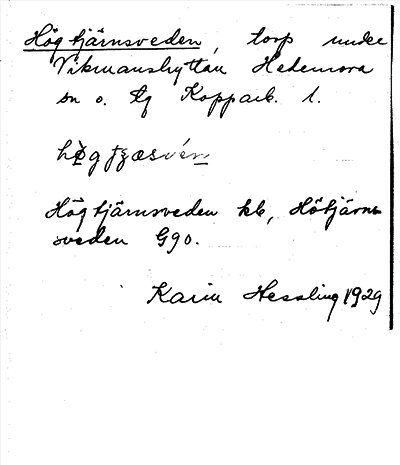 Högtjärnsveden, torp under
Vikmanshyttan Hedemora
sn o. tg Kopparb. l.
Högtjärnsveden kb, Hötjärns-
sveden G90.
Karin Hessling 1929